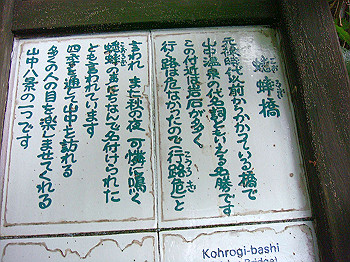 蟋蟀橋
こおろぎ
元禄時代以前からかかっている橋で
山中温泉の代名詞ともいえる名勝です
この付近は岩石が多く
行路は危なかったので(行路危)と
こうろぎ
言われ また秋の夜 可憐に鳴く
蟋蟀の声にちなんで名付けられた
とも言われています
四季を通して山中を訪れる
多くの人の目を楽しませてくれる
山中八景の一つです
Kohrogi-bashi